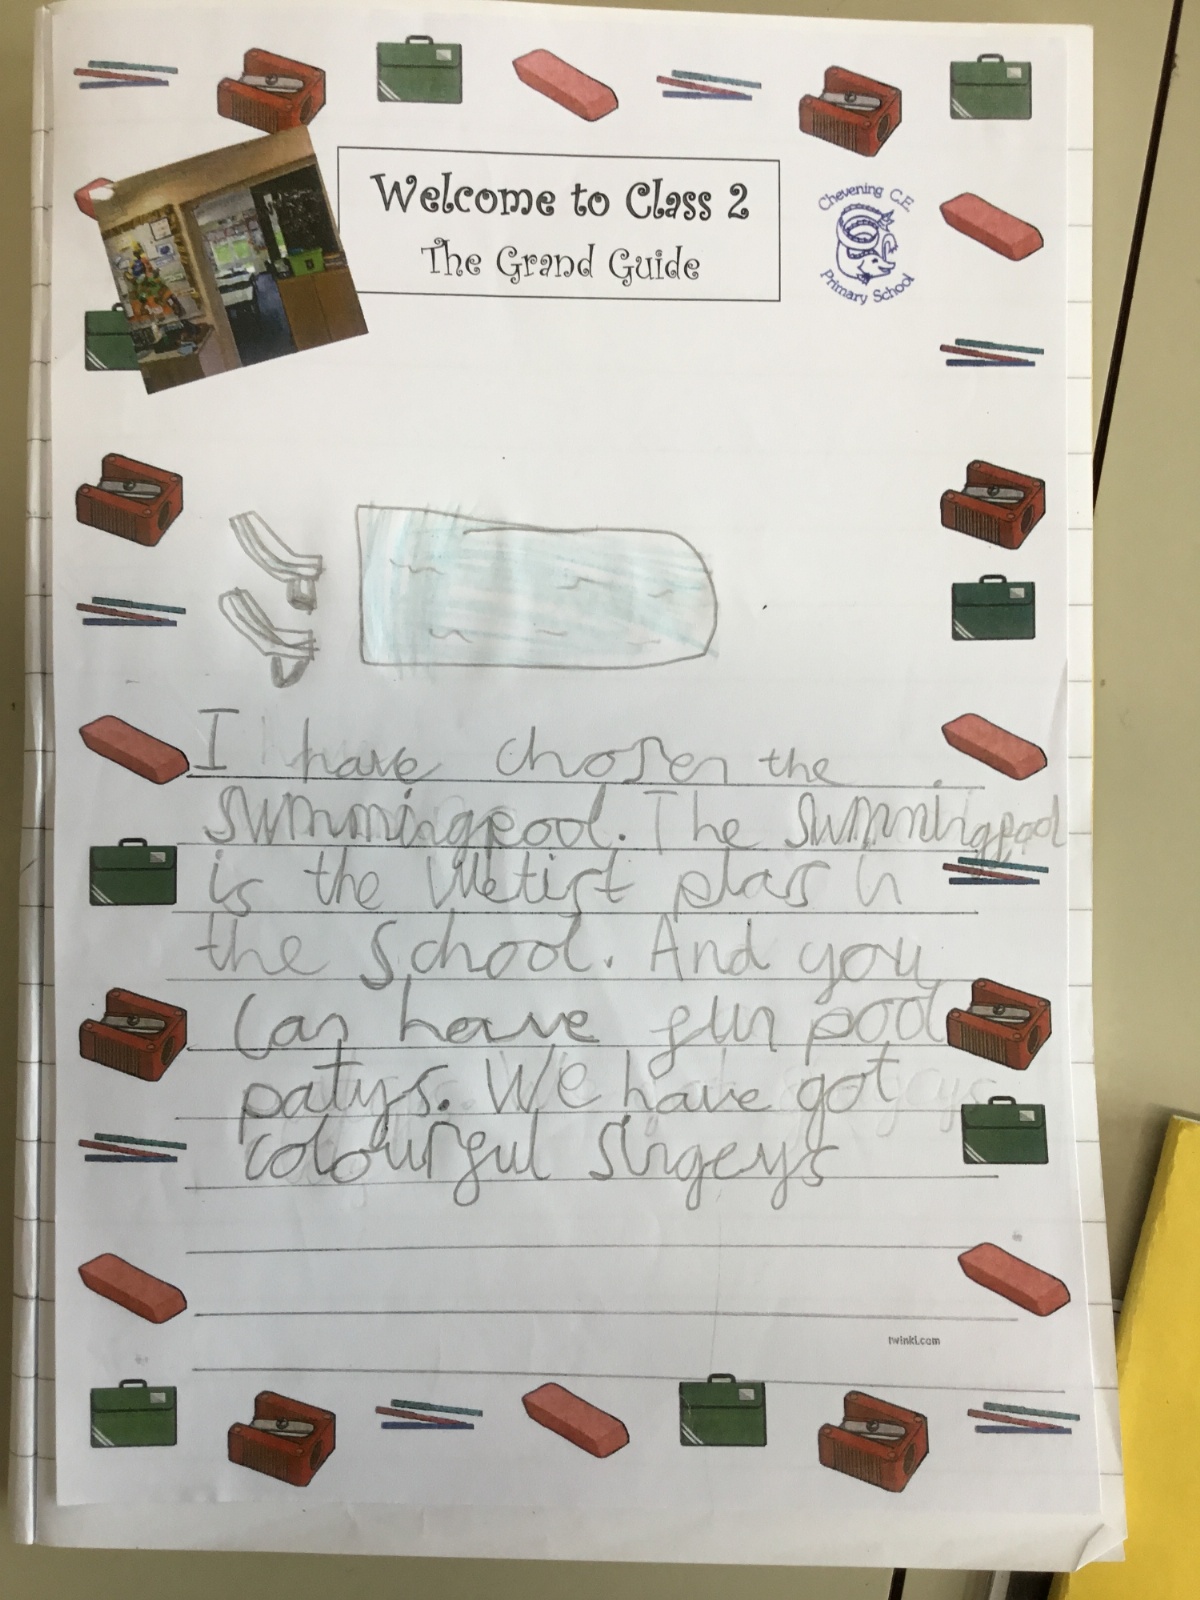 Welcome to Class 2
The Grand Guide
Chevening C.E.
Primary School
I have chosen the
swmmingpool. The swmmingpool
is the wetist plars in
the school. And you
can have fun pool
patys. We have got
colourful singeys
twinkl.com